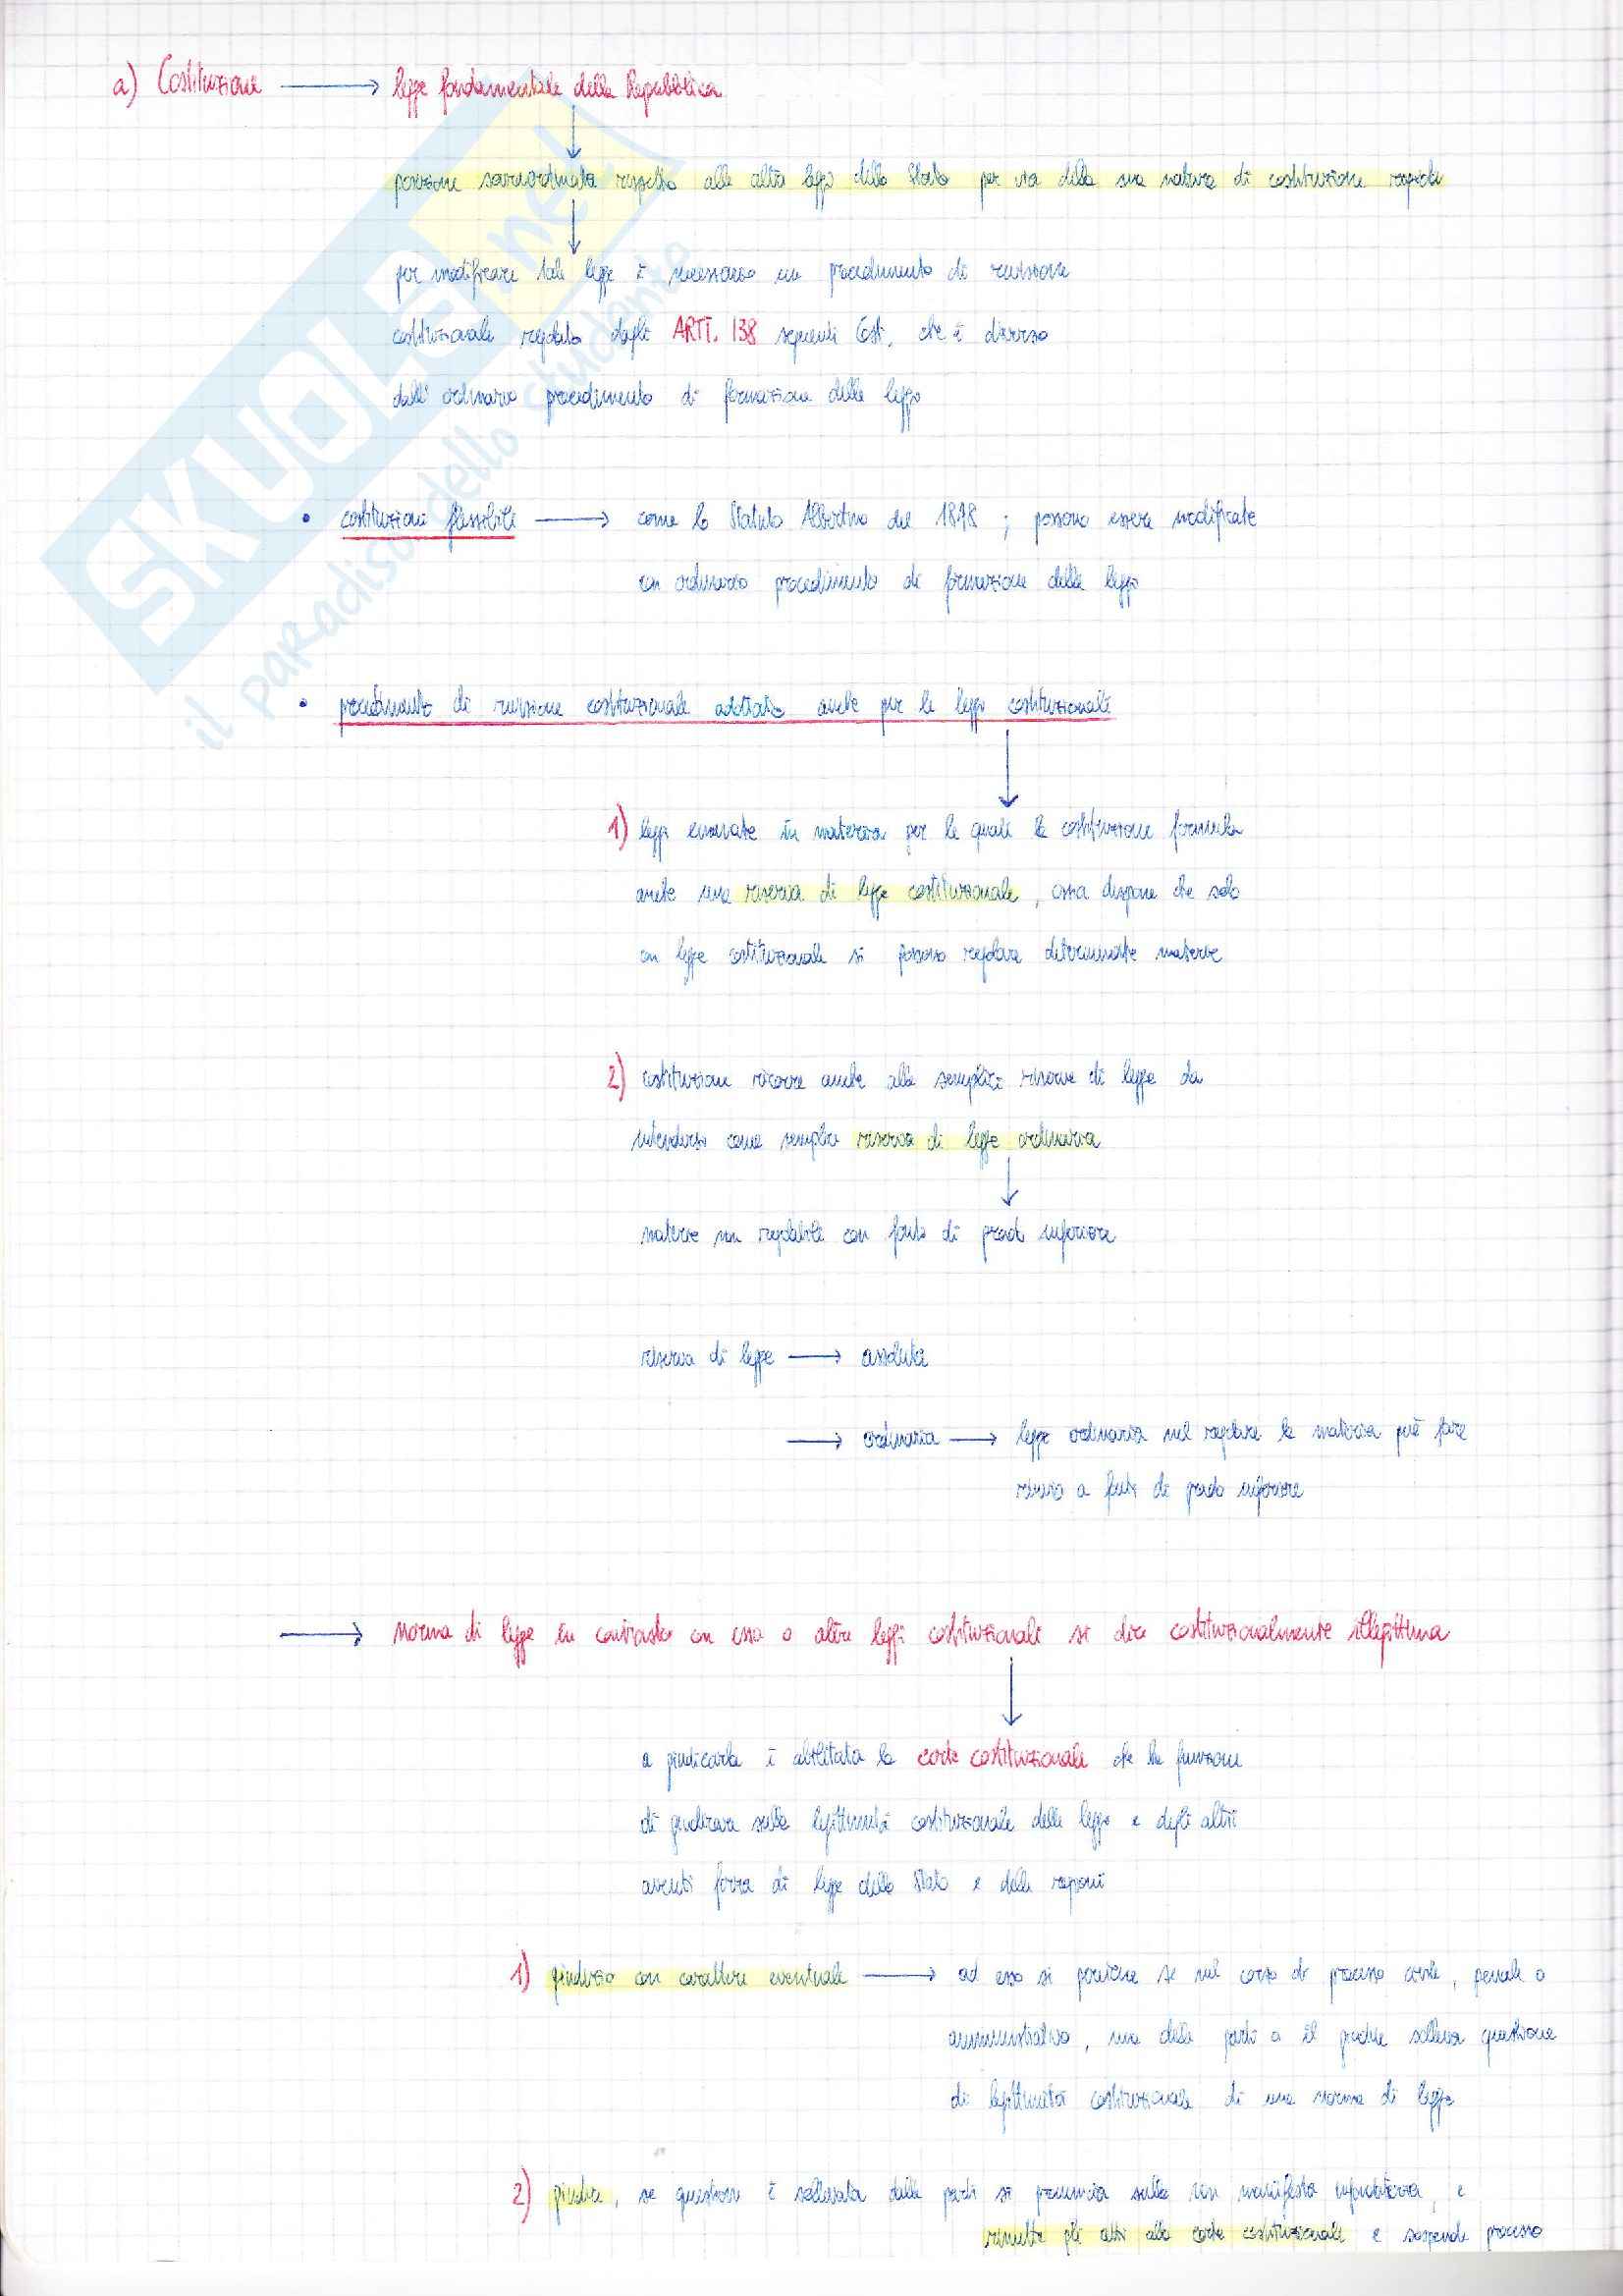 a) Costituzione → legge fondamentale della Repubblica
posizione sovraordinata rispetto alle altre leggi dello Stato per via della sua natura di costituzione rigida
per modificare tale legge è necessario un procedimento di revisione
costituzionale regolato dagli ARTT. 138 seguenti Cost. che è diverso
dall'ordinario procedimento di formazione delle leggi
• costituzioni flessibili → come lo Statuto Albertino del 1848 ; possono essere modificate
con ordinario procedimento di formazione delle leggi
• procedimento di revisione costituzionale adottato anche per le leggi costituzionali
1) leggi emanate in materia per le quali la costituzione formula
anche una riserva di legge costituzionale, ossia dispone che solo
con legge costituzionale si possono regolare determinate materie
2) costituzione ricorre anche alle semplici riserve di legge da
intendersi come semplice riserva di legge ordinaria
materie non regolabili con fonti di grado inferiore
riserva di legge → assoluta
→ ordinaria → legge ordinaria nel regolare la materia può fare
rinvio a fonti di grado inferiore
→ norma di legge in contrasto con essa o altre leggi costituzionali si dice costituzionalmente illegittima
a giudicarla è abilitata la corte costituzionale che ha funzione
di giudicare sulla legittimità costituzionale delle leggi e degli altri
aventi forza di legge dello Stato e delle regioni
1) giudizio con carattere eventuale → ad esso si perviene se nel corso di processo civile, penale o
amministrativo, una delle parti o il giudice solleva questione
di legittimità costituzionale di una norma di legge
2) giudice, se questione è sollevata dalle parti si pronuncia sulla non manifesta infondatezza, e
rimette gli atti alla corte costituzionale e sospende processo
SKUOLA.net
il paradiso dello studente